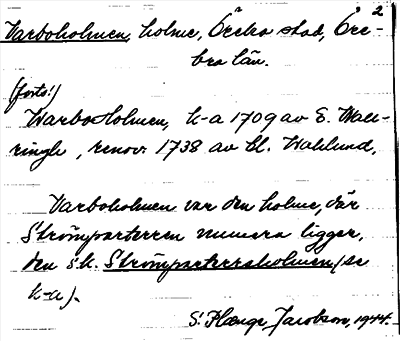 2
Varboholmen, holme, Örebro stad, Öre-
bro län.
(forts!)
Warbo Holmen, k-a 1709 av E. Wall-
ringh, renov. 1738 av Cl. Wahlund,
Varboholmen var den holme, där
Strömparterren numera ligger,
den s.k. Strömparterrsholmen (se
k-a).
S. Plænge Jacobson, 1944.